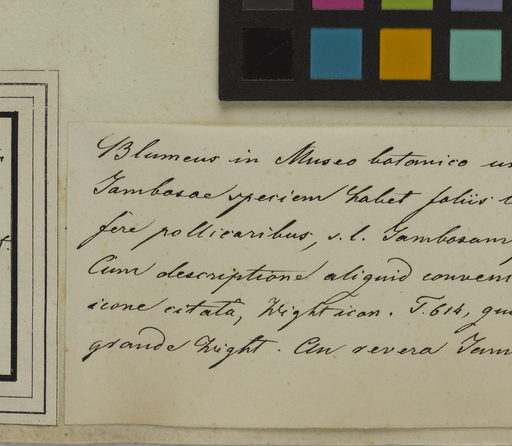 Blumeus in Museo botanico un
Jambosae speciem habet foliis
fere pollicaribus, s. l. Jambosam
Cum descriptione aliquid conven
icone citatâ, Wight icon. T. 614, qu
grande Wight. An revera Jam